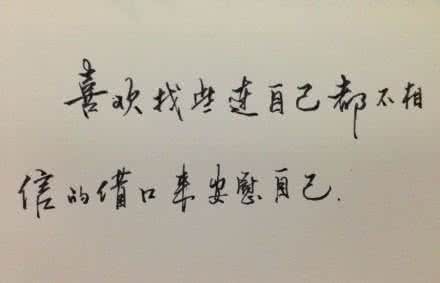 喜欢找些连自己都不相
信的借口来安慰自己.